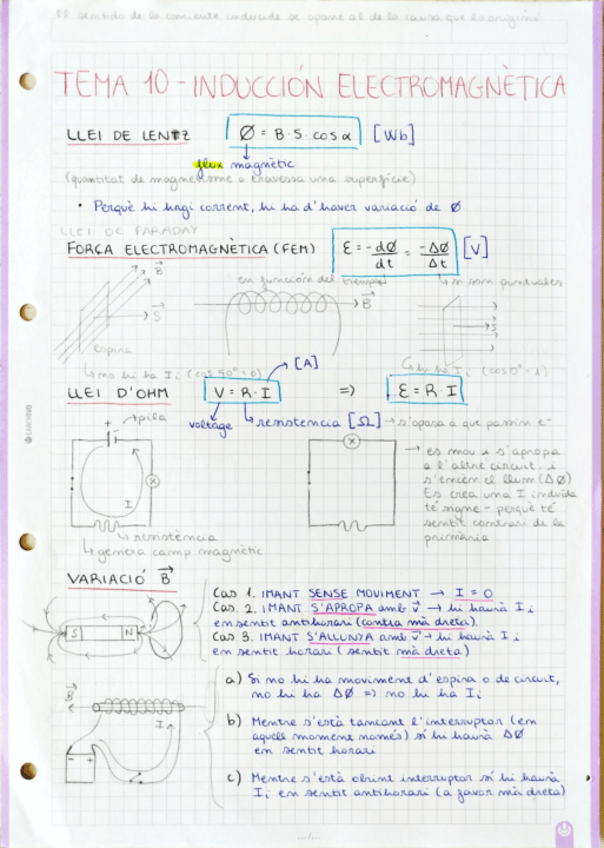 El sentido de la corriente inducide se opone al de la causa que lo origino
TEMA 10 - INDUCCIÓN ELECTROMAGNÈTICA
LLEI DE LENTZ
Ø = B · S · cos α [Wb]
flux magnètic
(quantitat de magnetisme q travessa una superfície)
• Perquè hi hagi corrent, hi ha d'haver variació de Ø
LLEI DE FARADAY
FORÇA ELECTROMAGNÈTICA (FEM)
Ɛ = -dØ/dt = -ΔØ/Δt [V]
en función del tiempo
↳ si son puntuales
B
S
espira
B
S
↳ no hi ha Ii (cos 90° = 0)
↳ hi ha Ii (cos 0° = 1)
LLEI D'OHM
V = R · I
→ [A]
=>
Ɛ = R · I
voltatge
↳ resistencia [Ω] → s'oposa a que passin e-
+ -
→ pila
I
↳ resistència
↳ genera camp magnètic
→ es mou i s'apropa
a l'altre circuit, i
s'encén el llum (ΔØ)
Es crea una I induida
té signe - perquè té
sentit contrari de la
primària
VARIACIÓ B
S N
Cas 1. IMANT SENSE MOVIMENT → I = 0
Cas 2. IMANT S'APROPA amb v → hi haurà Ii
en sentit antihorari (contra mà dreta).
Cas 3. IMANT S'ALLUNYA amb v → hi haurà Ii
en sentit horari (sentit mà dreta)
B
I
- +
a) Si no hi ha moviment d'espira o de circuit,
no hi ha ΔØ => no hi ha Ii
b) Mentre s'està tancant l'interruptor (en
aquell moment només) sí hi haurà ΔØ
en sentit horari
c) Mentre s'està obrint interruptor sí hi haurà
Ii en sentit antihorari (a favor mà dreta)
.../...